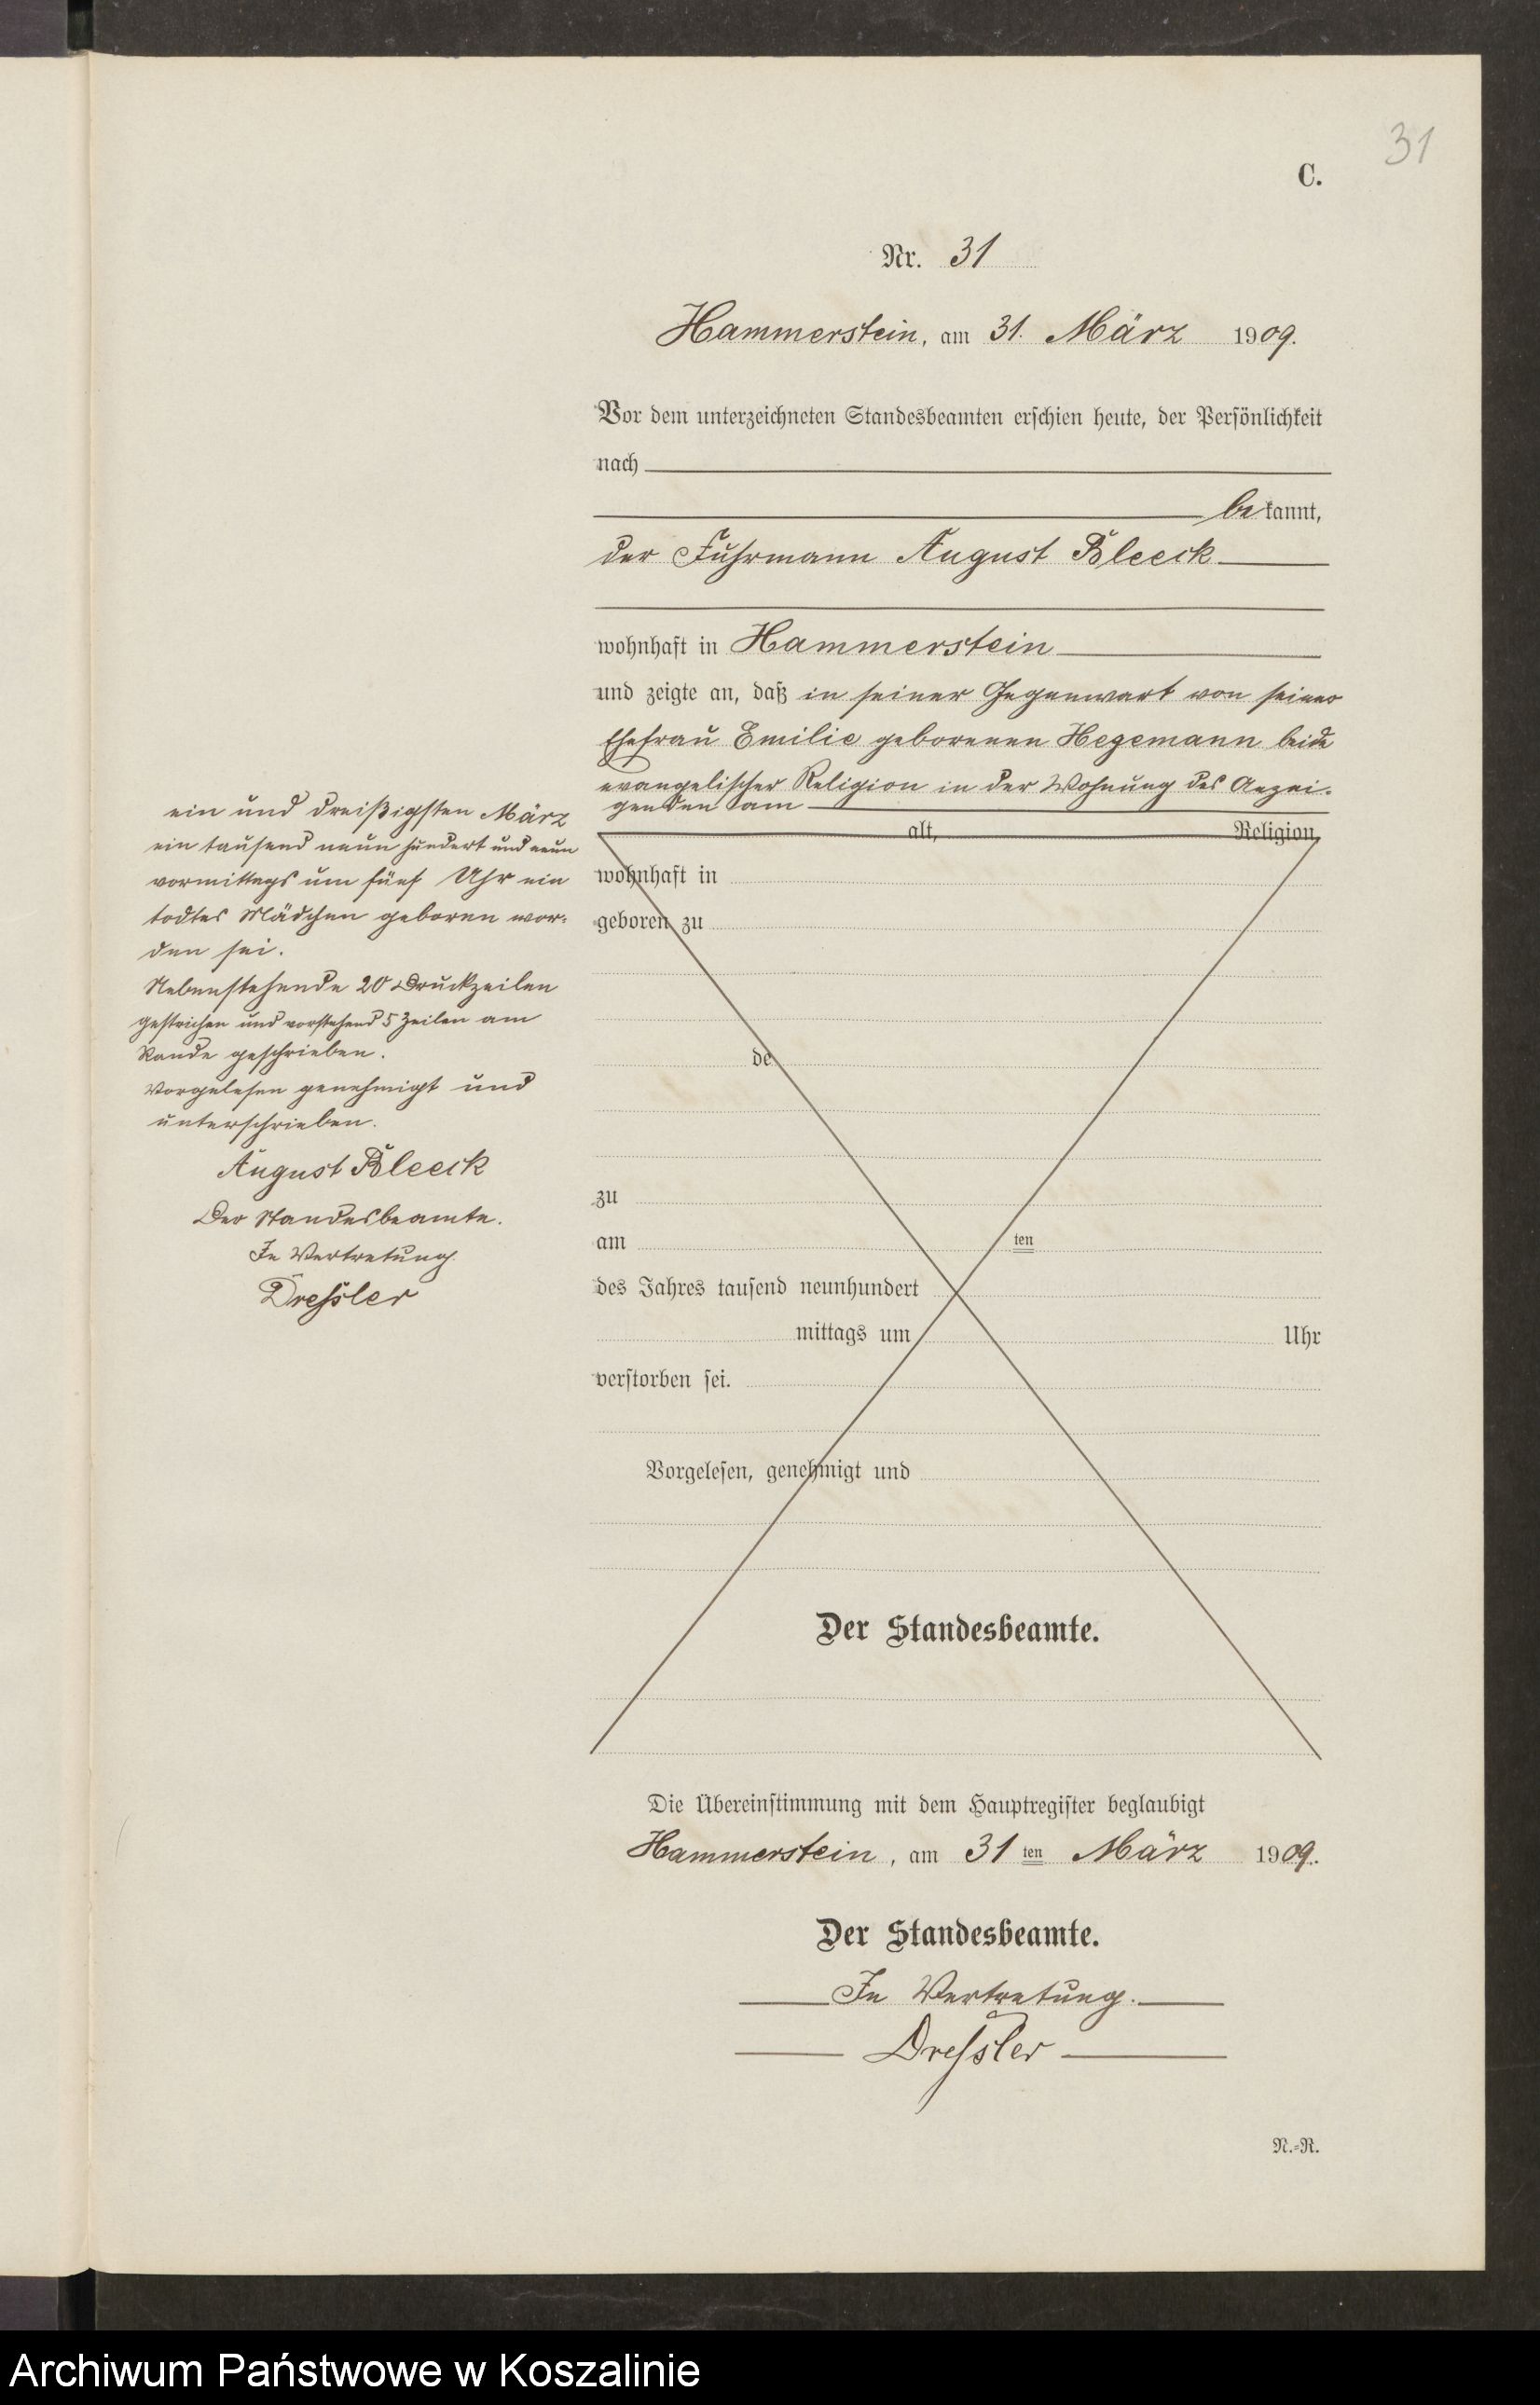 31
C.
Nr. 31
Hammerstein, am 31. März 1909.
Vor dem unterzeichneten Standesbeamten erschien heute, der Persönlichkeit
nach
bekannt,
der Fuhrmann August Bleeck
wohnhaft in Hammerstein
und zeigte an, daß in seiner Gegenwart von seiner
Ehefrau Emilie geborenen Hegemann beide
evangelischer Religion in der Wohnung des Anzei-
genden am
alt, Religion,
wohnhaft in
geboren zu
de
zu
am ten
des Jahres tausend neunhundert
mittags um Uhr
verstorben sei.
Vorgelesen, genehmigt und
Der Standesbeamte.
ein und dreißigsten März
ein tausend neun hundert und neun
vormittags um fünf Uhr ein
todtes Mädchen geboren wor-
den sei.
Nebenstehende 20 Druckzeilen
gestrichen und vorstehend 5 Zeilen am
Rande geschrieben.
Vorgelesen genehmigt und
unterschrieben.
August Bleeck
Der Standesbeamte.
In Vertretung.
Dressler
Die Übereinstimmung mit dem Hauptregister beglaubigt
Hammerstein, am 31 ten März 1909.
Der Standesbeamte.
In Vertretung.
Dressler
N.-R.
Archiwum Państwowe w Koszalinie